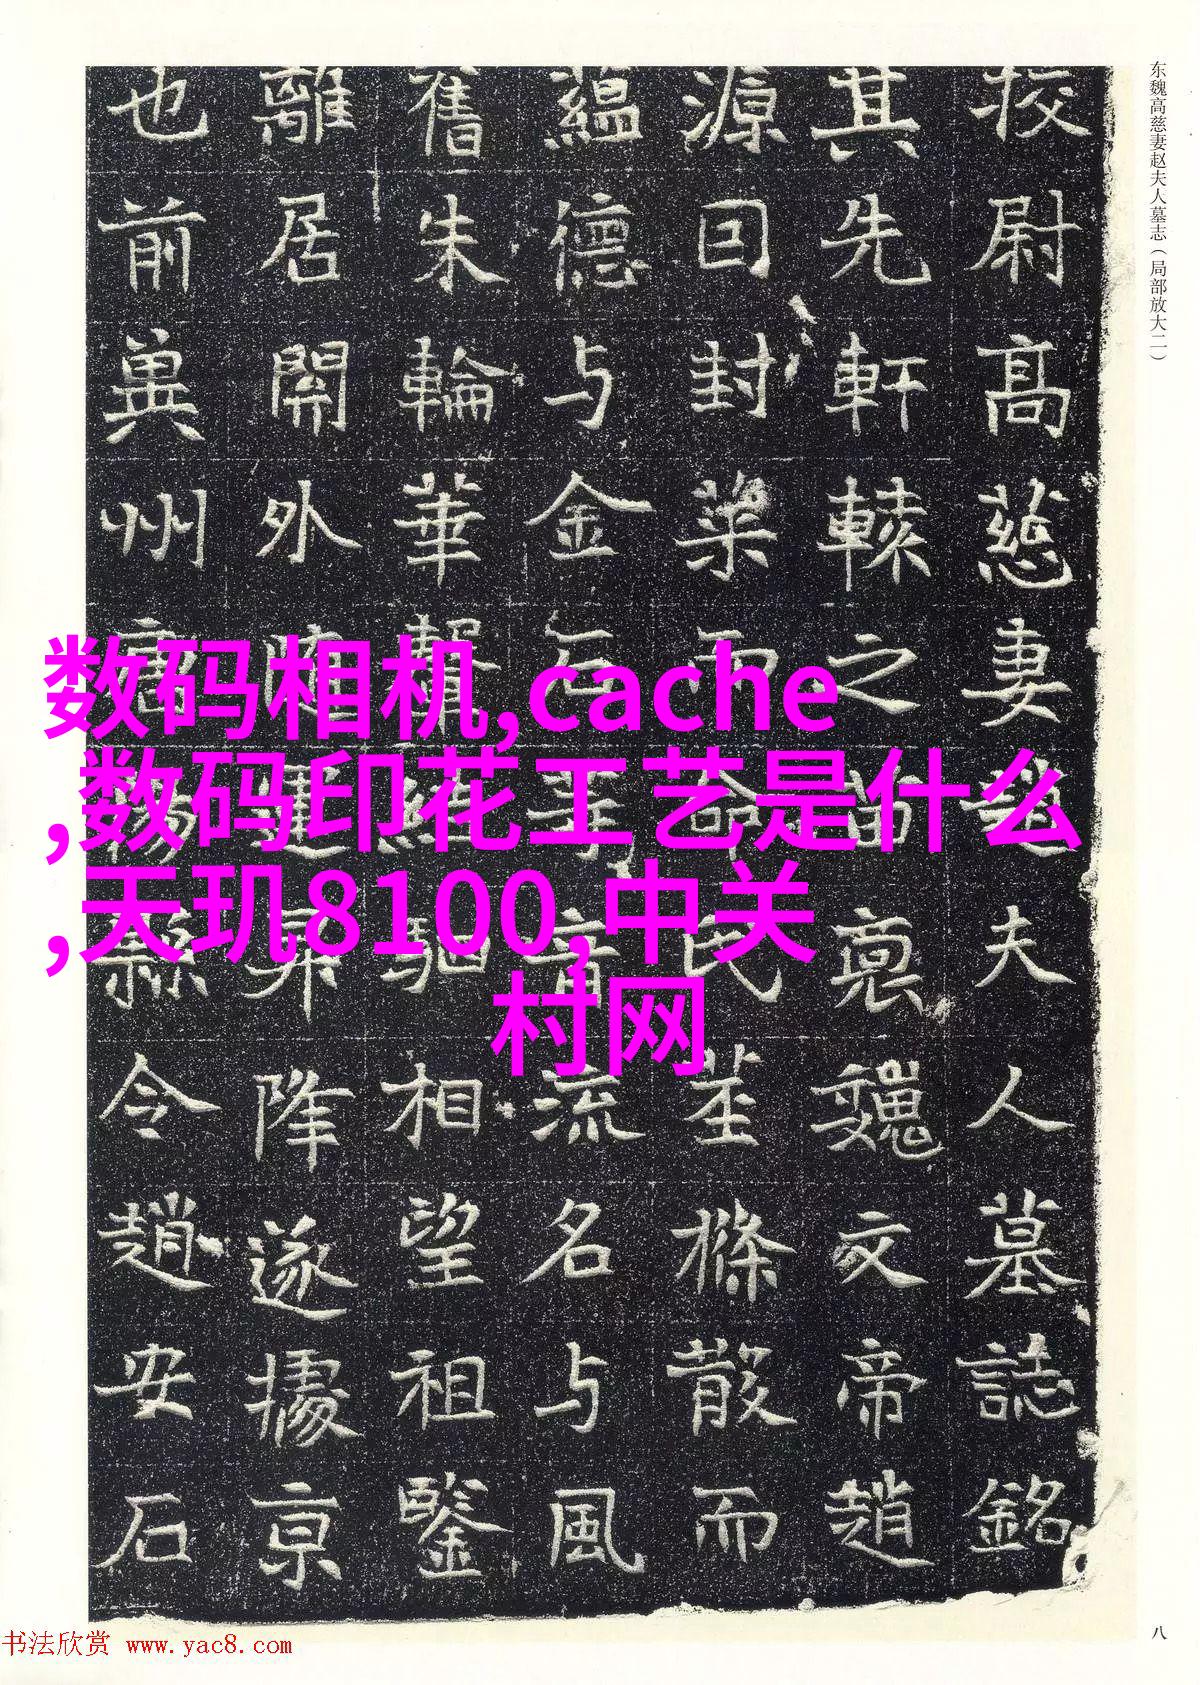 东魏高慈妻赵夫人墓志（局部放大二）
挍尉高慈妻夫人墓誌銘
其先軒轅之苗裔魏文帝趙
源囙封渠而命氏茎條散而
蘊德与金石音流名与風
舊朱輪華馳相望祖鑒
離居開外随運昇降遂據京
也前兾州唐陽縣令趙安石
数码相机,cache
,数码印花工艺是什么
,天玑8100,中关
村网
八
书法欣赏 www.yac8.com